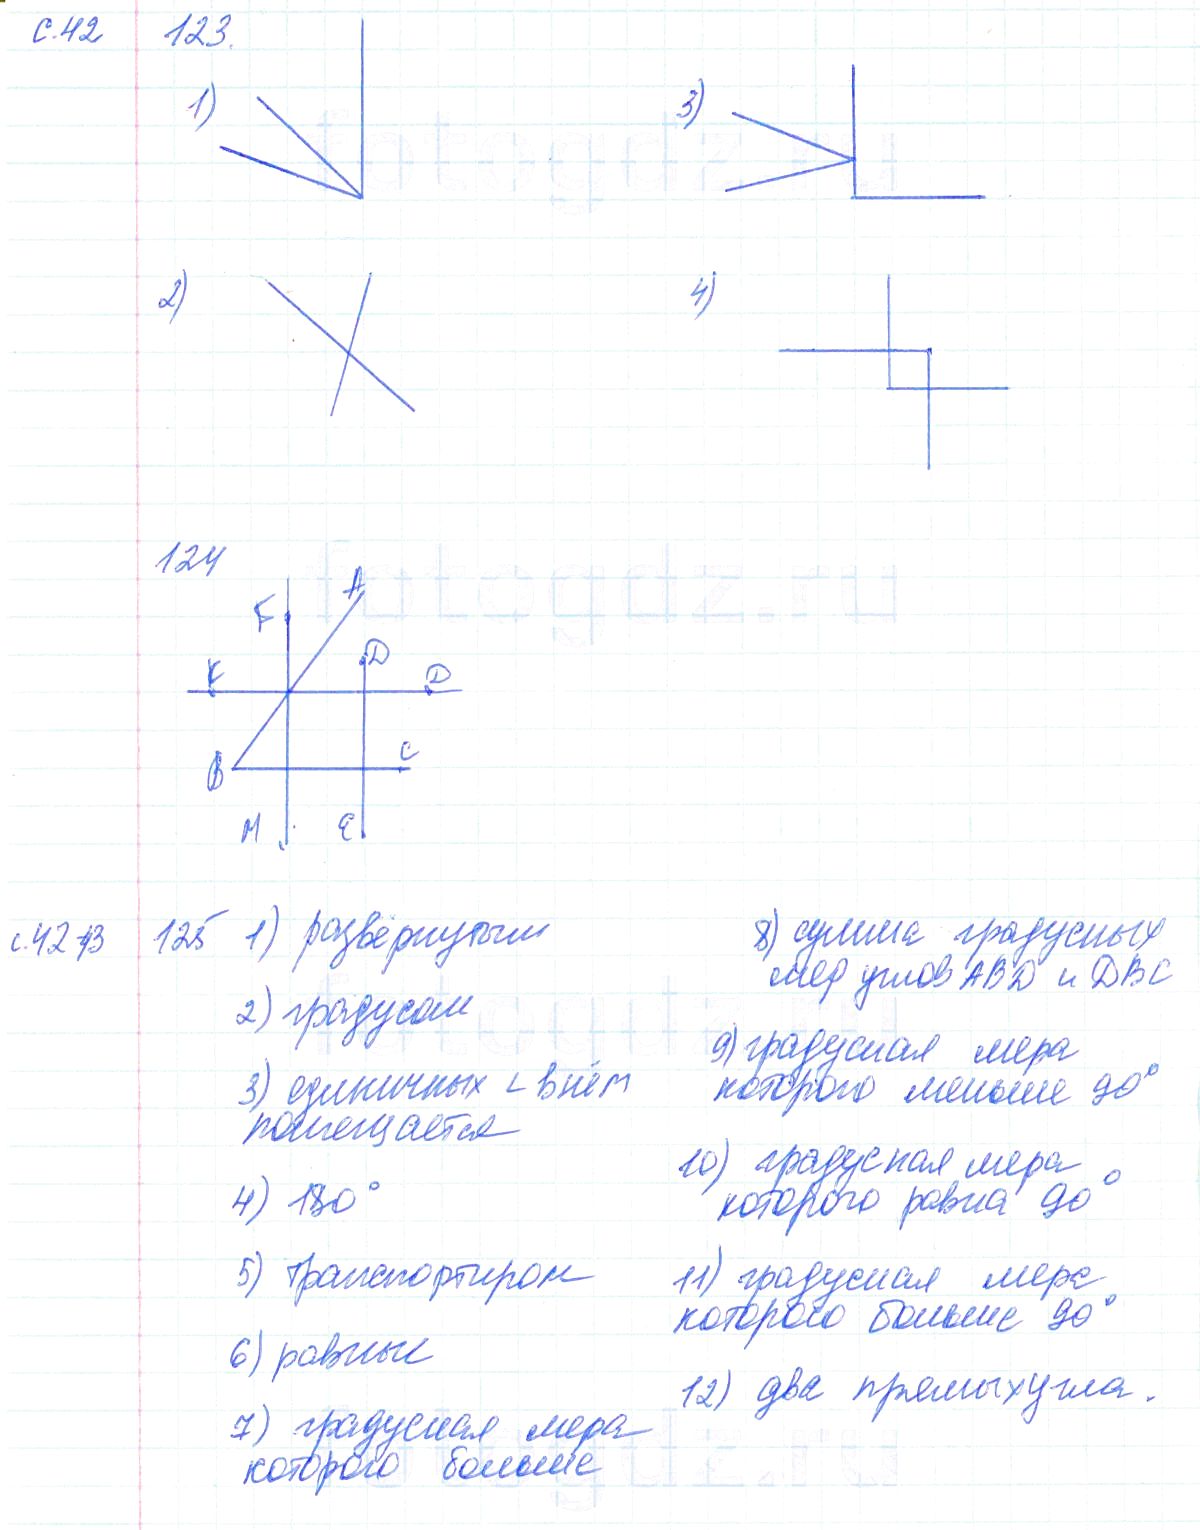 с.42 123.
1)
3)
2)
4)
124
F
A
D
K
D
B
C
M
E
с.42-43 125 1) развёрнутым
2) градусом
3) единичных ∠ в нём
помещается
4) 180°
5) транспортиром
6) равны
7) градусная мера
которого больше
8) сумма градусных
мер углов ABD и DBC
9) градусная мера
которого меньше 90°
10) градусная мера
которого равна 90°
11) градусная мера
которого больше 90°
12) два прямых угла.
fotogdz.ru
fotogdz.ru
fotogdz.ru
fotogdz.ru